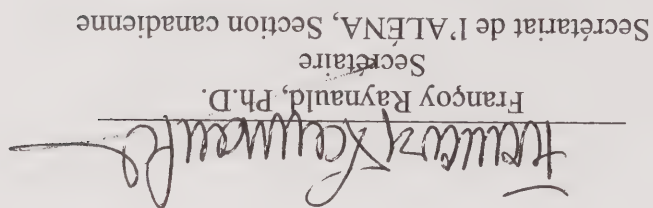 Françoy Raynauld
Françoy Raynauld, Ph.D.
Secrétaire
Secrétariat de l'ALÉNA, Section canadienne